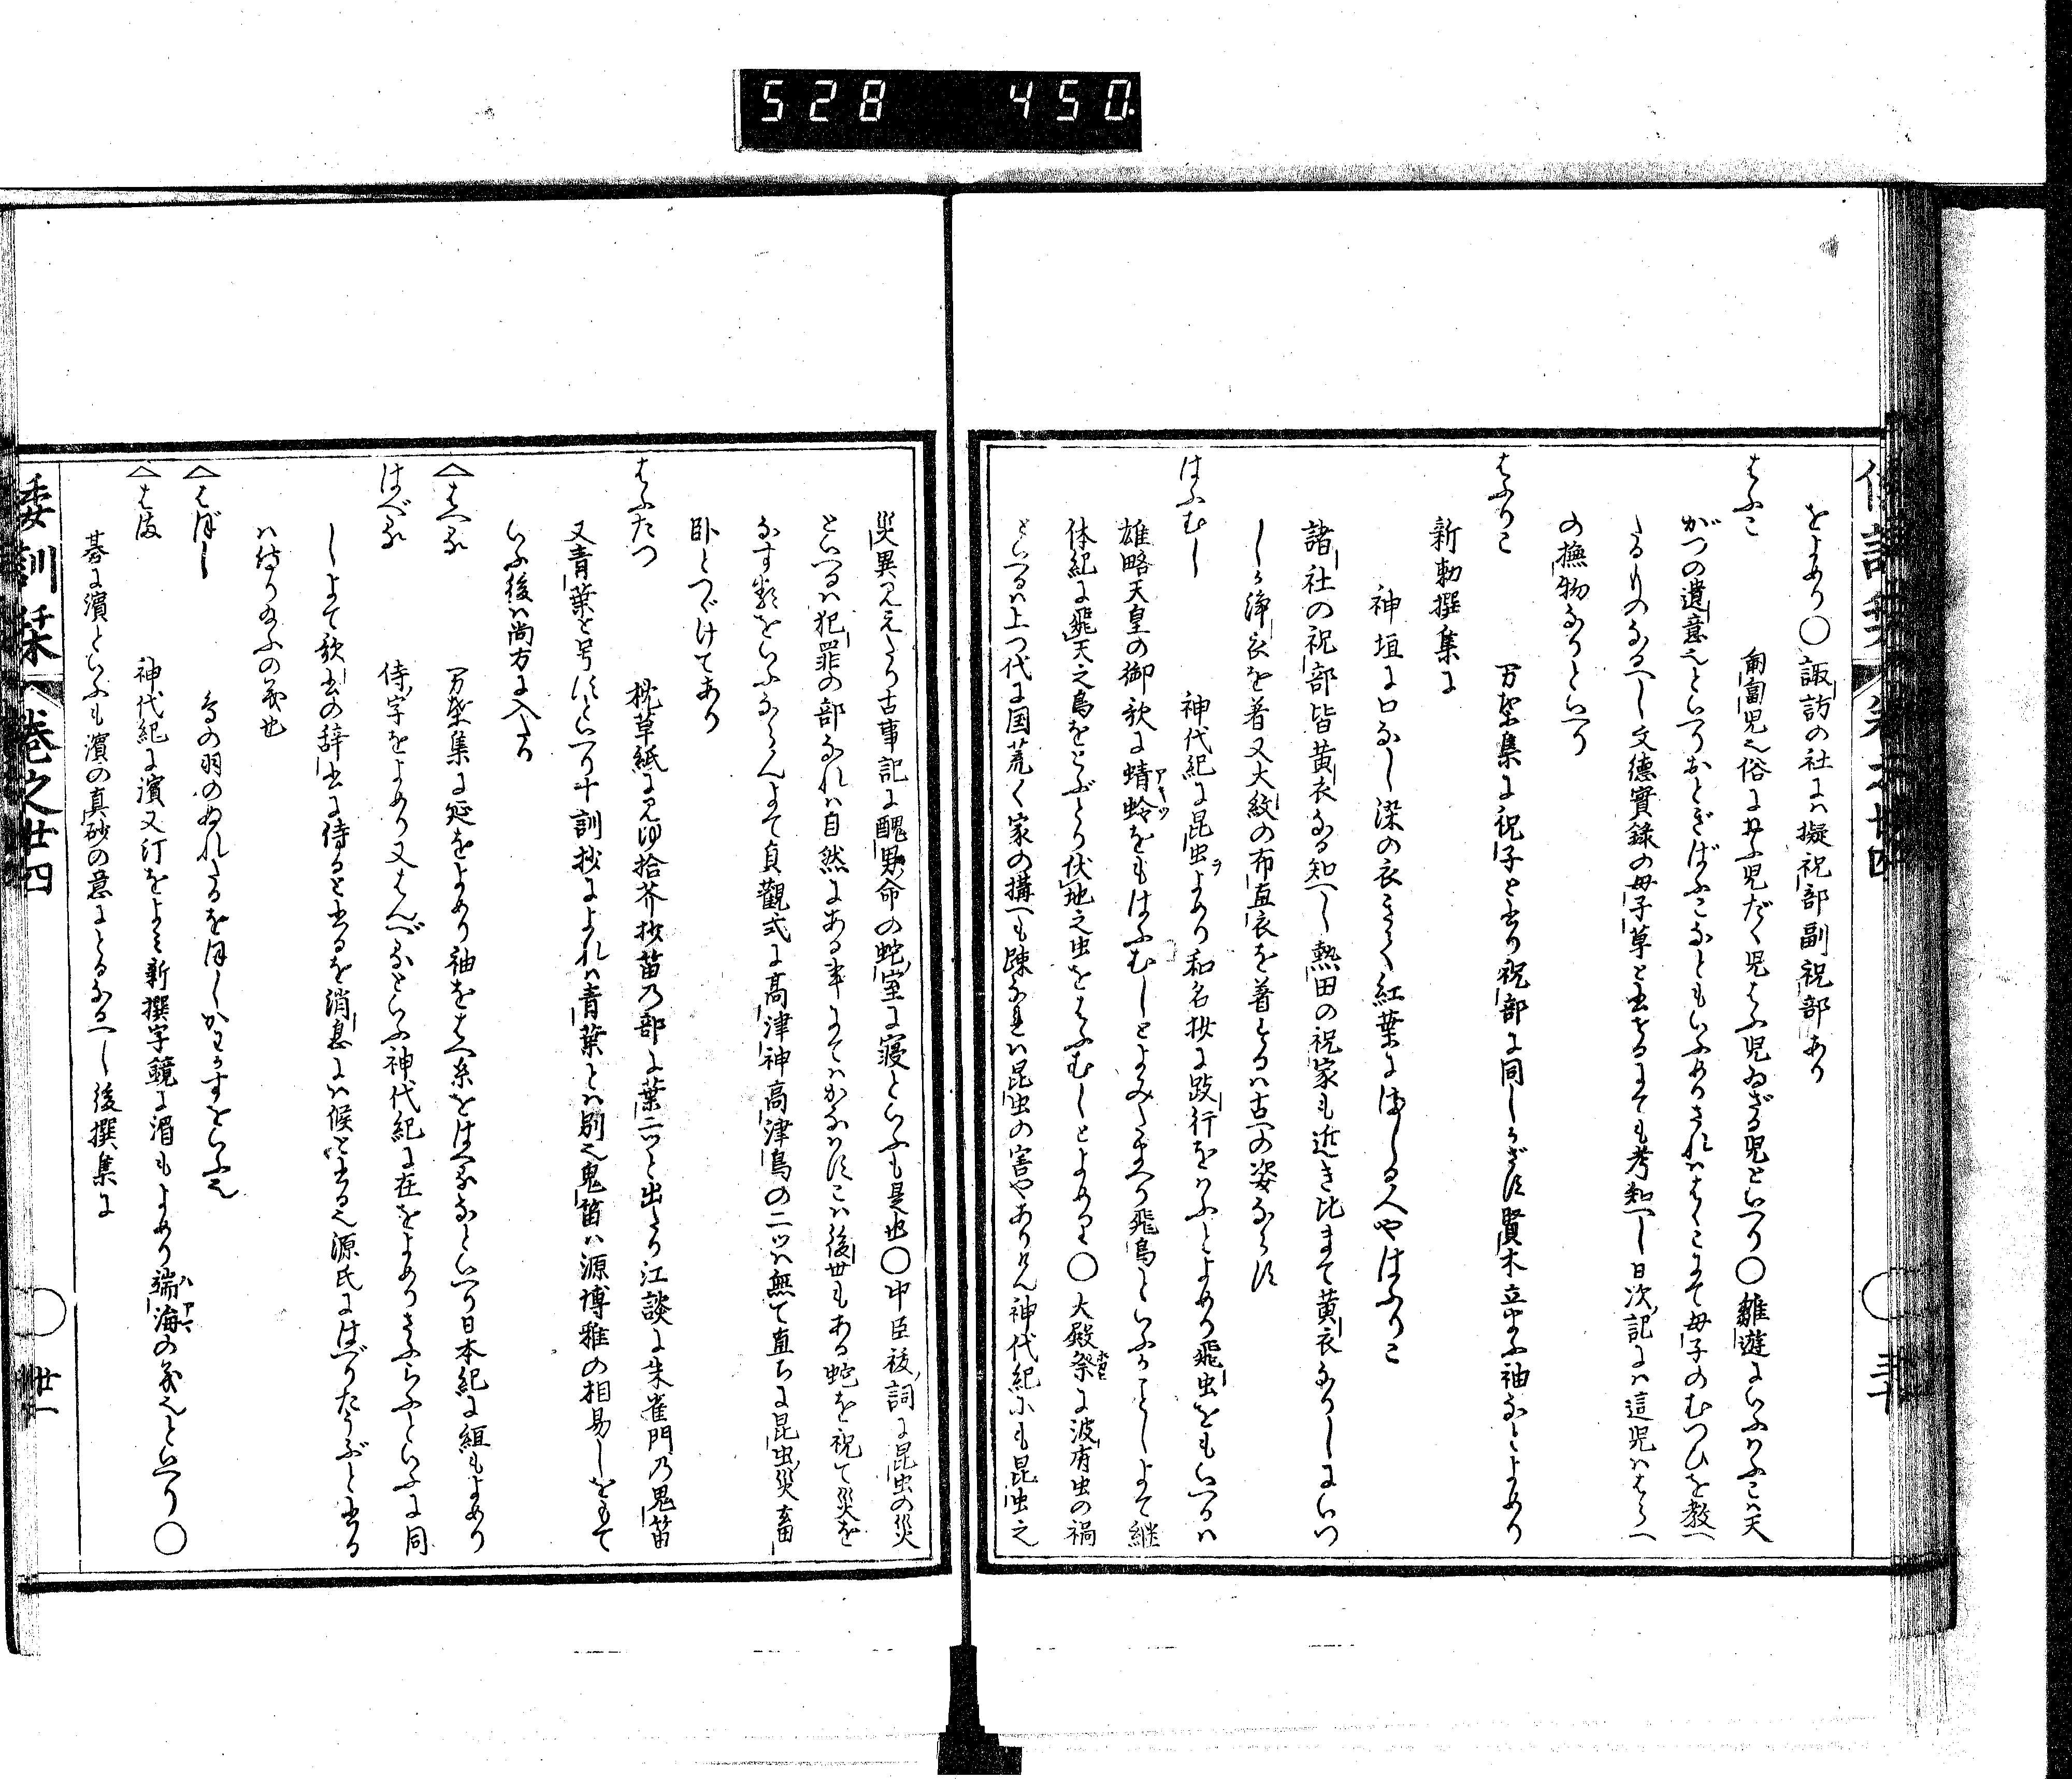 528 450.
倭訓栞 巻之廿四 三十
をよめり〇諏訪の社には擬祝部副祝部あり
はふこ 匍匐児之俗に這ふ児だく児はふ児ゐざる児といへり〇雛遊にいふはふこは天
がつの遺意之といへりおとぎばふこなともいふめりされははゝこにて母子のむつひを教へ
たるものなるへし文徳實録の母子草と書をるにても考知へし日次記には這児ははらへ
の撫物なりといへり
はふりこ 万葉集に祝子と書り祝部に同しうぎは賢木立ふ袖なとよめり
新勅撰集に
神垣に口なし染の衣きて紅葉にましる人やはふりこ
諸社の祝部皆黄衣なる知へし熱田の祝家も近き比まて黄衣なりしにいつ
しか浄衣を着又大紋の布直衣を着するは古への姿ならす
はふむし 神代紀に昆虫ヲよめり和名抄に跂行をはふとよめり飛虫をもいへるは
雄略天皇の御歌に蜻蛉アキツをもはふむしとよみたまへり飛鳥といふかことしよて継
体紀に飛天之鳥をとぶとり伏地之虫をはふむしとよめり〇大殿祭ホカヒに波府虫の禍
といへるは上つ代に国荒く家の構へも疎なれは昆虫の害やありけん神代紀にも昆虫之
災異見えたり古事記に醜男命の蛇室に寝といふも是也〇中臣祓詞に昆虫の災
といへるは犯罪の部なれは自然にある事にてはかなはすこは後世もある蛇を祝て災を
なす類をいふならんよて貞觀式に高津神高津鳥の二つは無て直ちに昆虫災畜
臥とつゞけてあり
はふたつ 枕草紙に見ゆ拾芥抄笛乃部に葉二つと出たり江談に朱雀門乃鬼笛
又青葉と号すといへり十訓抄によれは青葉とは別之鬼笛は源博雅の相易しをもて
いふ後は尚方に入たり
へはへる 万葉集に延をよめり袖をはへ糸をはへるなといへり日本紀に絙もよめり
はべる 侍字をよめり又はんべるといふ神代紀に在をよめりさふらふといふに同
しよて歌書の辞書に侍ると書るを消息には候と書る之源氏にはべりたうぶと書る
は侍り給ふの義也
へはほし 鳥の羽のぬれたるをほしかわかすをいふ之
へはま 神代紀に濱又汀をよみ新撰字鏡に湄もよめり端海ハアマの義之といへり〇
碁に濱といふも濱の真砂の意にとるなるへし後撰集に
倭訓栞 巻之廿四 卅一